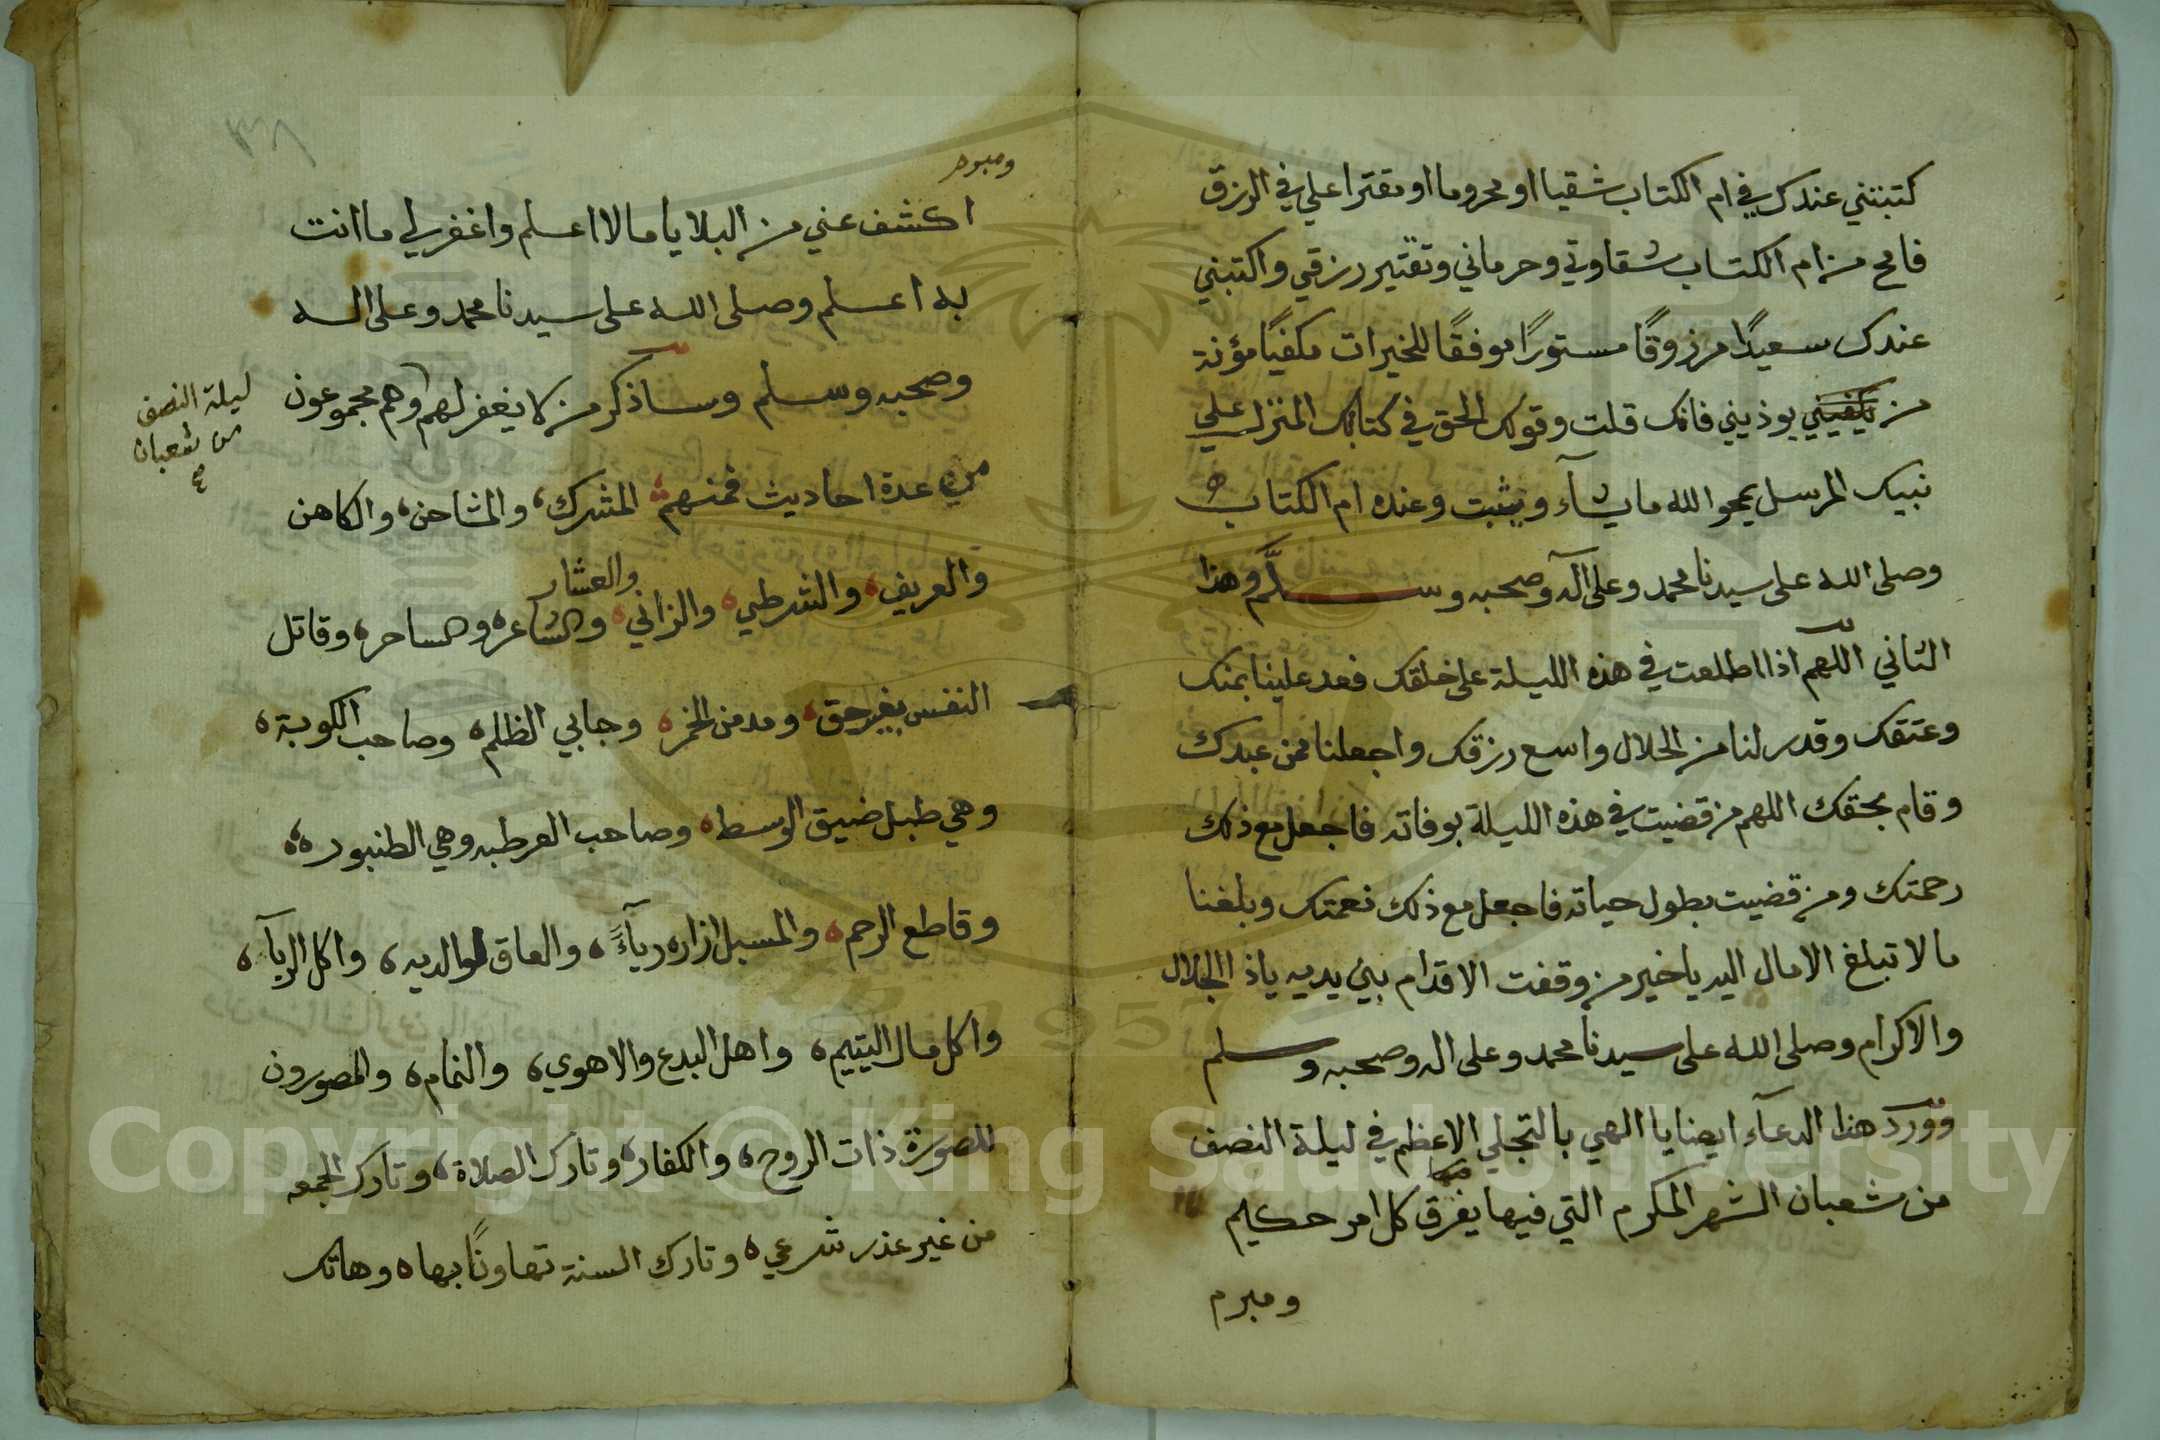 كتبتني عندك في ام الكتاب شقيا او محروما او مقترا علي في الرزق
فامح من ام الكتاب شقاوتي وحرماني وتقتير رزقي واكتبني
عندك سعيدًا مرزوقًا مستورًا موفقًا للخيرات مكفيًا مؤنة
من يوذيني فانك قلت وقولك الحق في كتابك المنزل علي
نبيك المرسل يمحو الله ما يشآء ويثبت وعنده ام الكتاب
وصلى الله على سيدنا محمد وعلى آله وصحبه وسلَّم وهذا
الثاني اللهم اذا اطلعت في هذه الليلة على خلقك فعد علينا بمنك
وعتقك وقدر لنا من الحلال واسع رزقك واجعلنا ممن عبدك
وقام بحقك اللهم من قضيت في هذه الليلة بوفاته فاجعل مع ذلك
رحمتك ومن قضيت بطول حياته فاجعل مع ذلك نعمتك وبلغنا
ما لا تبلغ الامال اليه يا خير من وقفت الاقدام بين يديه ياذا الجلال
والاكرام وصلى الله على سيدنا محمد وعلى اله وصحبه وسلم
وورد هذا الدعآء ايضا يا الهي بالتجلي الاعظم في ليلة النصف
من شعبان الشهر المكرم التي فيها يفرق كل امر حكيم
ومبرم
اكشف عني من البلايا ما لا اعلم واغفر لي ما انت
به اعلم وصلى الله على سيدنا محمد وعلى اله
وصحبه وسلم وساذكر من لا يغفر لهم وهم مجموعون
من عدة احاديث فمنهم المشرك، والمشاحن، والكاهن
والعشار
والعريف، والشرطي، والزاني، والشاعر، والساحر، وقاتل
النفس بغير حق، ومدمن الخمر، وجابي الظلم، وصاحب الكوبة،
وهي طبل ضيق الوسط، وصاحب العرطبه وهي الطنبور،
وقاطع الرحم، والمسبل ازاره ريآءً، والعاق لوالديه، واكل الربآ،
واكل مال اليتيم، واهل البدع والاهوي، والنمام، والمصورون
للصورة ذات الروح، والكفار، وتارك الصلاة، وتارك الجمعه
من غير عذر شرعي، وتارك السنة تهاونًا بها، وهاتك
ليلة النصف
من شعبان
Copyright © King Saud University
1957